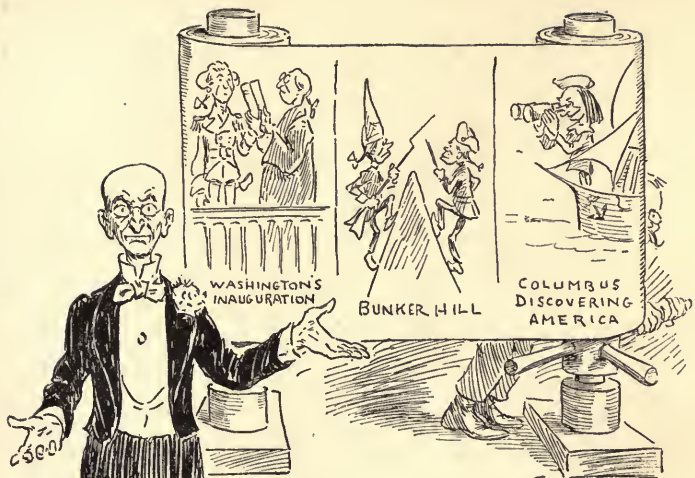 WASHINGTON'S
INAUGURATION
BUNKER HILL
COLUMBUS
DISCOVERING
AMERICA